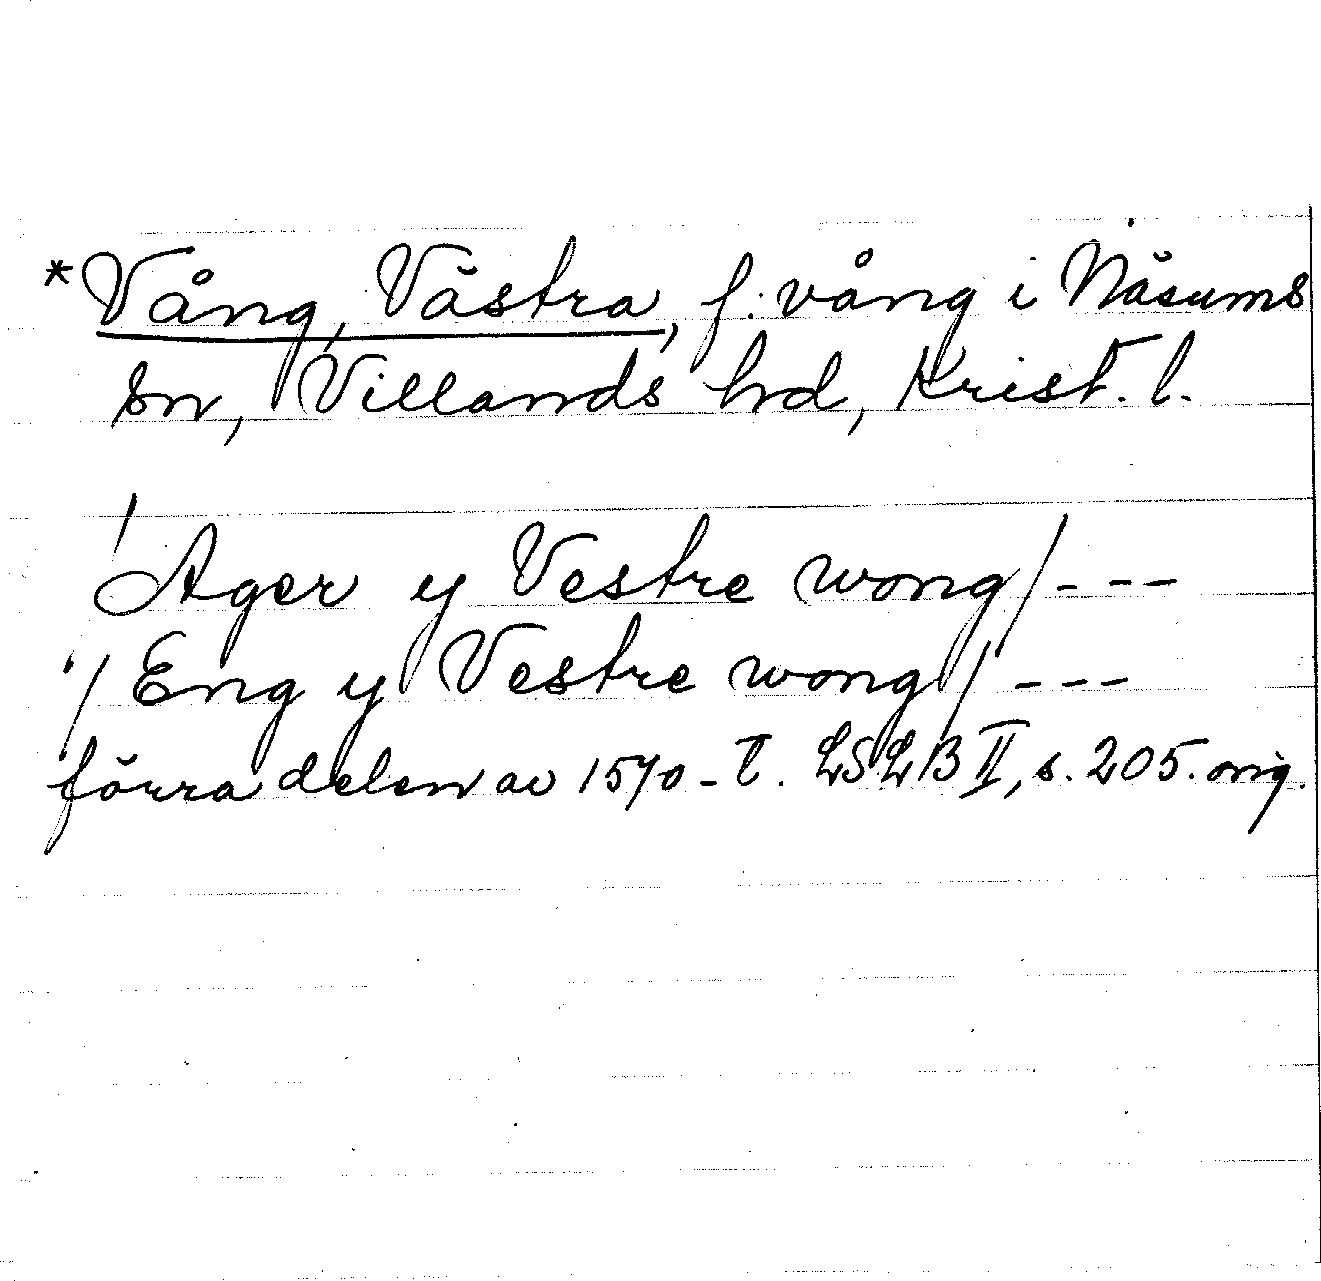 *Vång, Västra, f. vång i Näsums
sn, Villands hd, Krist. l.
/Ager y Vestre wong/ ---
/Eng y Vestre wong/ ---
förra delen av 1570-t. LSLB II, s. 205. orig.